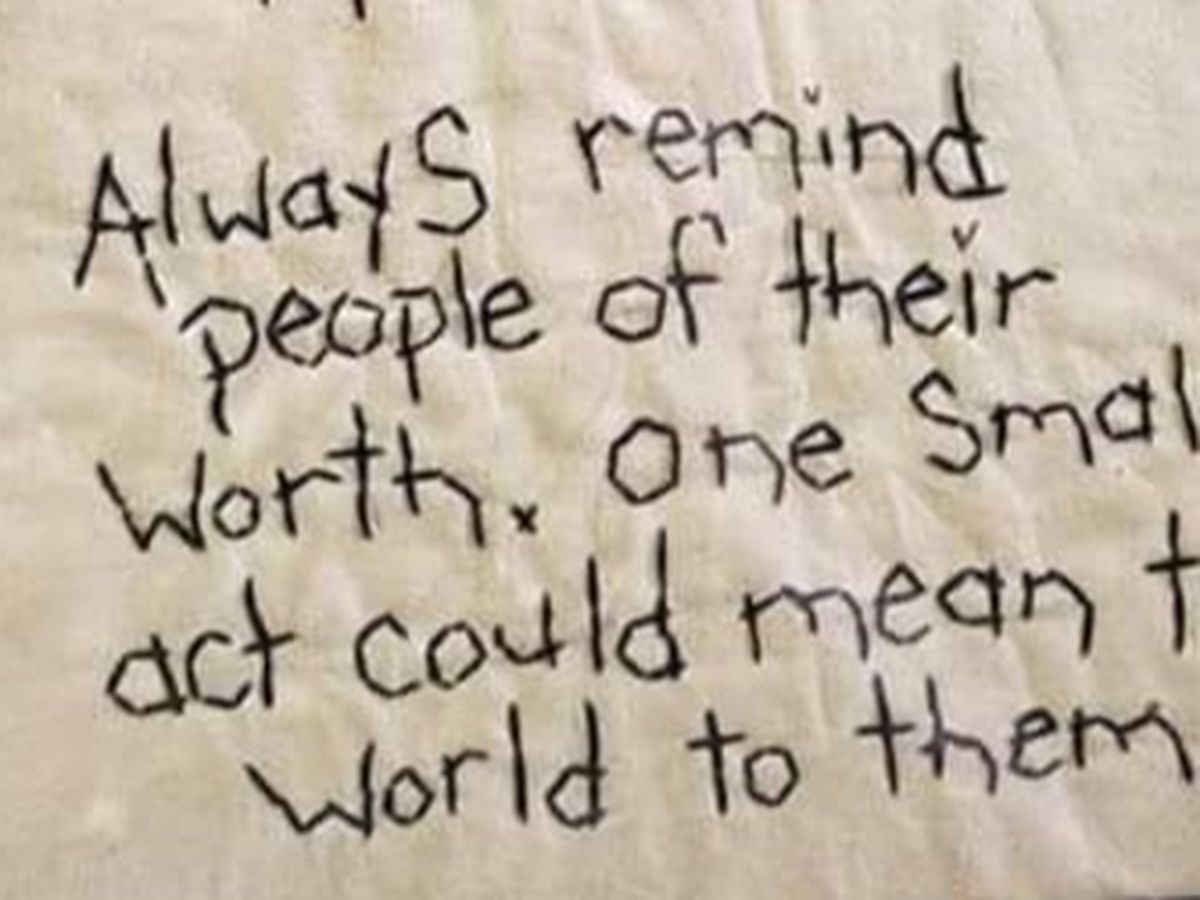 Always remind
people of their
worth. One Smal
act could mean t
world to them